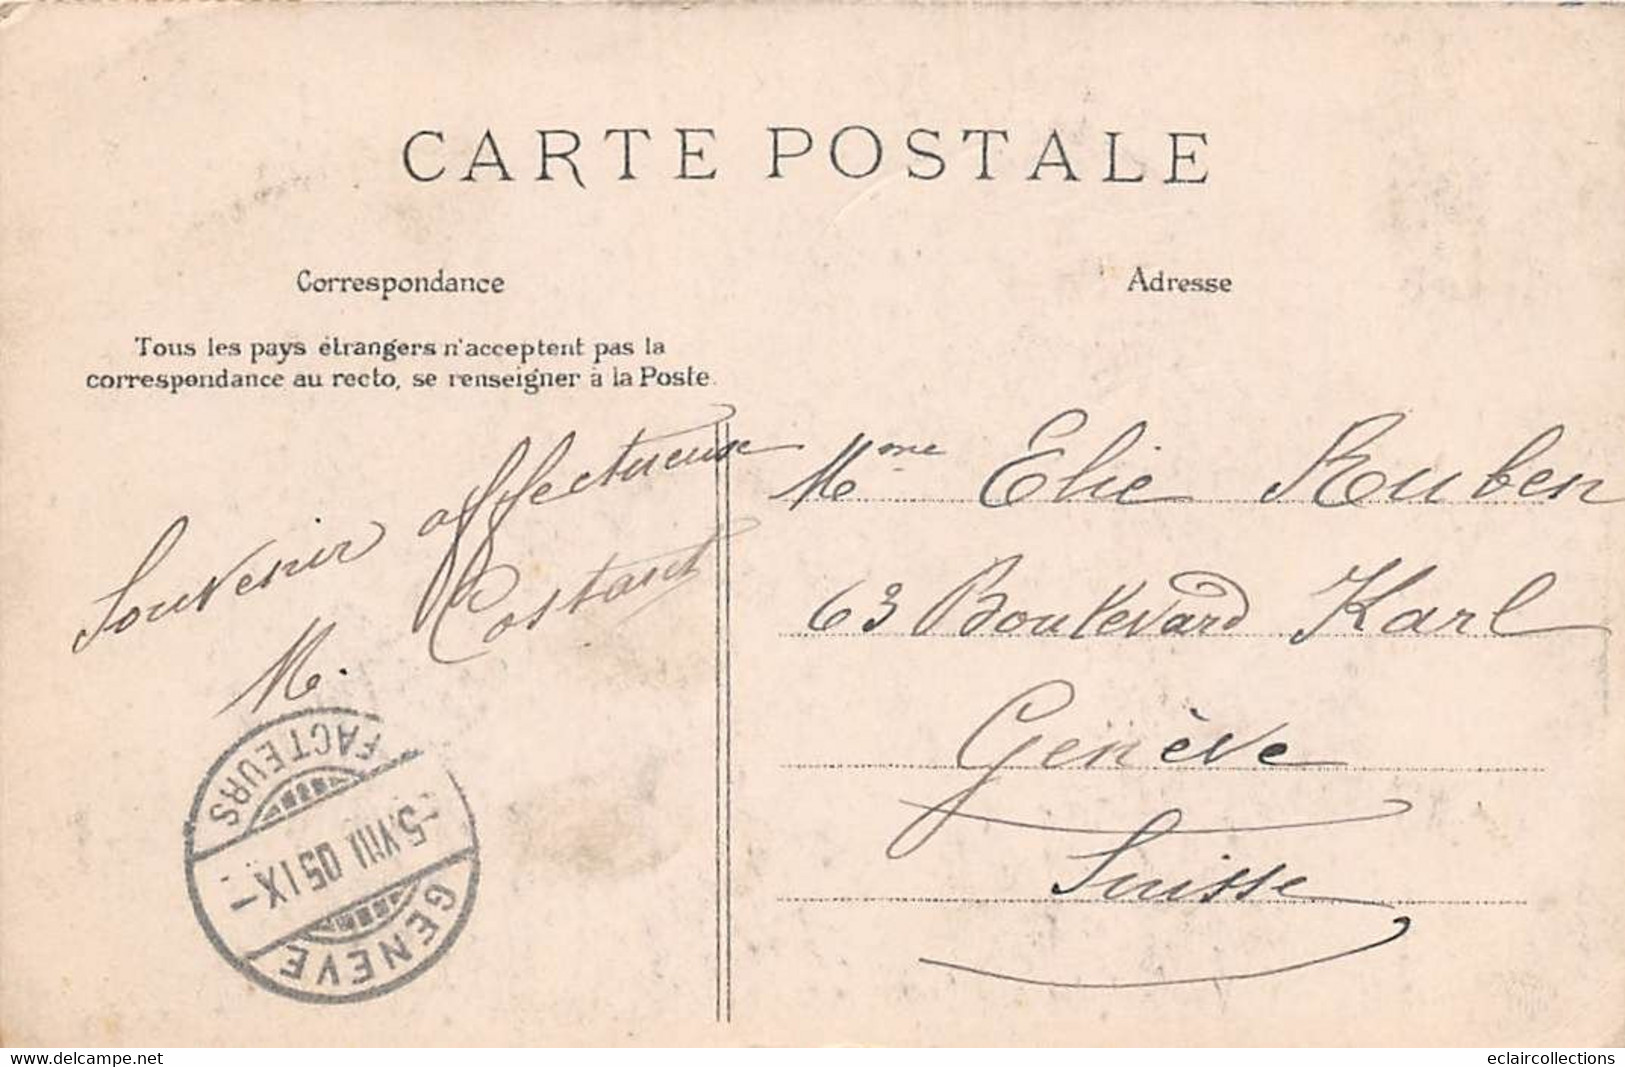 CARTE POSTALE
Correspondance
Adresse
Tous les pays étrangers n'acceptent pas la
correspondance au recto, se renseigner à la Poste.
Souvenir affectueuse
M. Costant
Mme Elie Ruben
63 Boulevard Karl
Genève
Suisse
FACTEURS
-5.VIII 05 IX-
GENÈVE
www.delcampe.net
eclaircollections